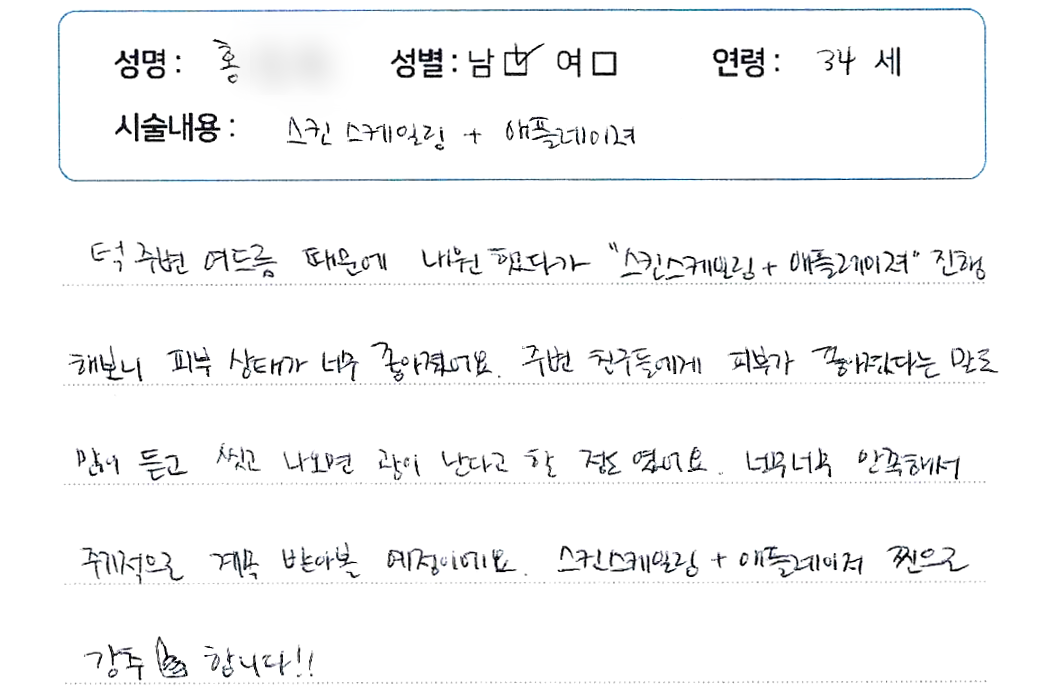 성명: 홍 성별: 남 ☑ 여 □ 연령: 34 세
시술내용: 스킨 스케일링 + 애플레이져
턱 주변 여드름 때문에 내원 했다가 "스킨스케일링 + 애플레이져" 진행
해보니 피부 상태가 너무 좋아졌어요. 주변 친구들에게 피부가 좋아졌다는 말도
많이 듣고 씻고 나오면 광이 난다고 할 정도 였어요. 너무너무 만족해서
주기적으로 계속 받아볼 예정이에요. 스킨스케일링 + 애플레이저 찐으로
강추 합니다!!